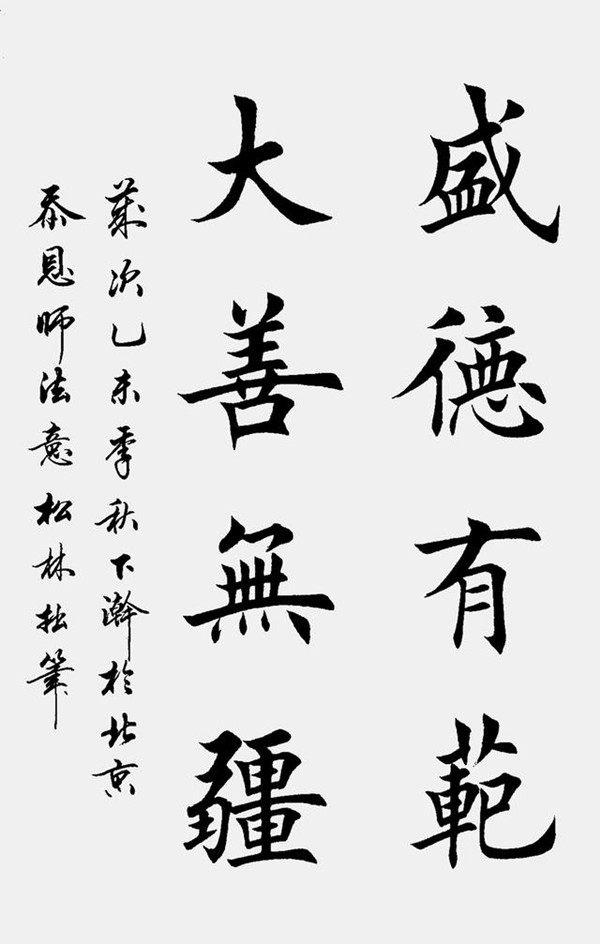 盛德有範
大善無疆
歲次乙未季秋下澣於北京
恩師法意松林拙筆